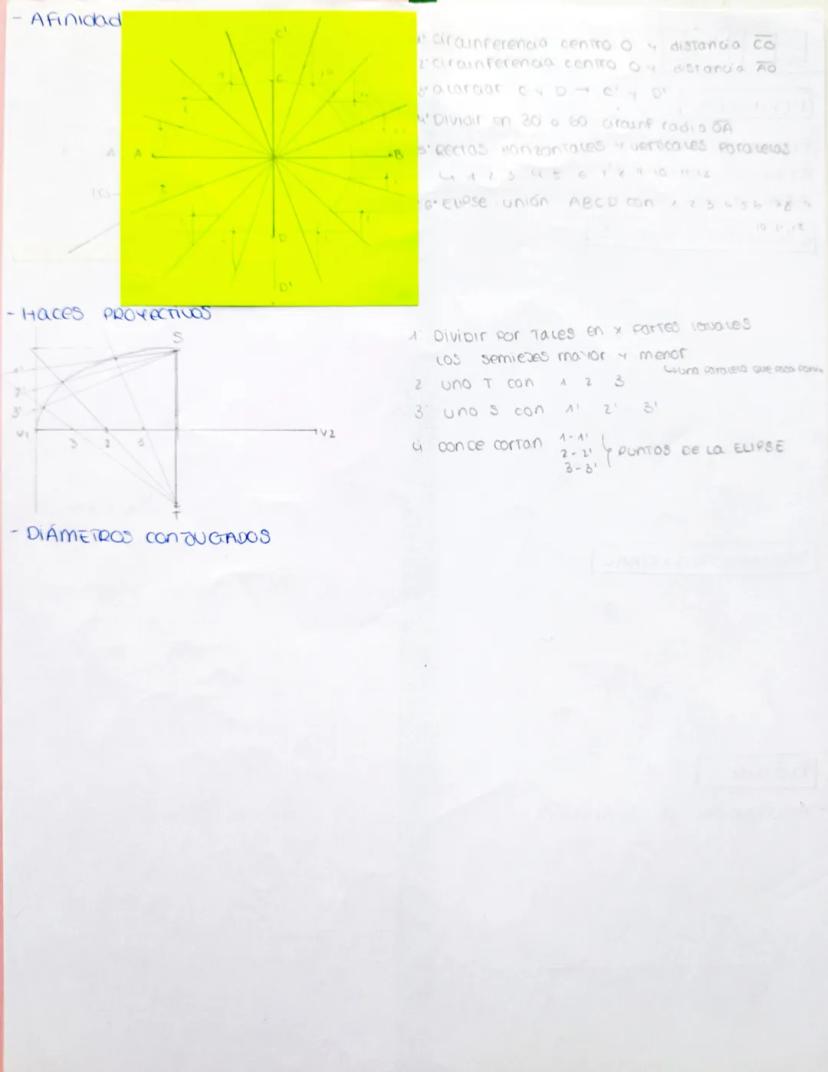 - AFINIDAD
C'
C
A
B
D
D'
1º circunferencia centro O y distancia CO
2º circunferencia centro O y distancia AO
3º alargar C y D → C' y D'
4º Dividir en 30 o 60 circunf radio OA
5º Rectas horizontales y verticales paralelas
↳ 1 2 3 4 5 6 7 8 9 10 11 12
6º Elipse unión ABCD con 1 2 3 4 5 6 7 8 9
10 11 12
- HACES PROYECTIVOS
S
1'
2'
3'
V1
3
2
V2
T
1 Dividir por Tales en x partes iguales
los semiejes mayor y menor
2 uno T con 1 2 3
3 uno S con 1' 2' 3'
4 donde cortan 1-1'
2-2' PUNTOS DE LA ELIPSE
3-3'
- DIÁMETROS CONJUGADOS